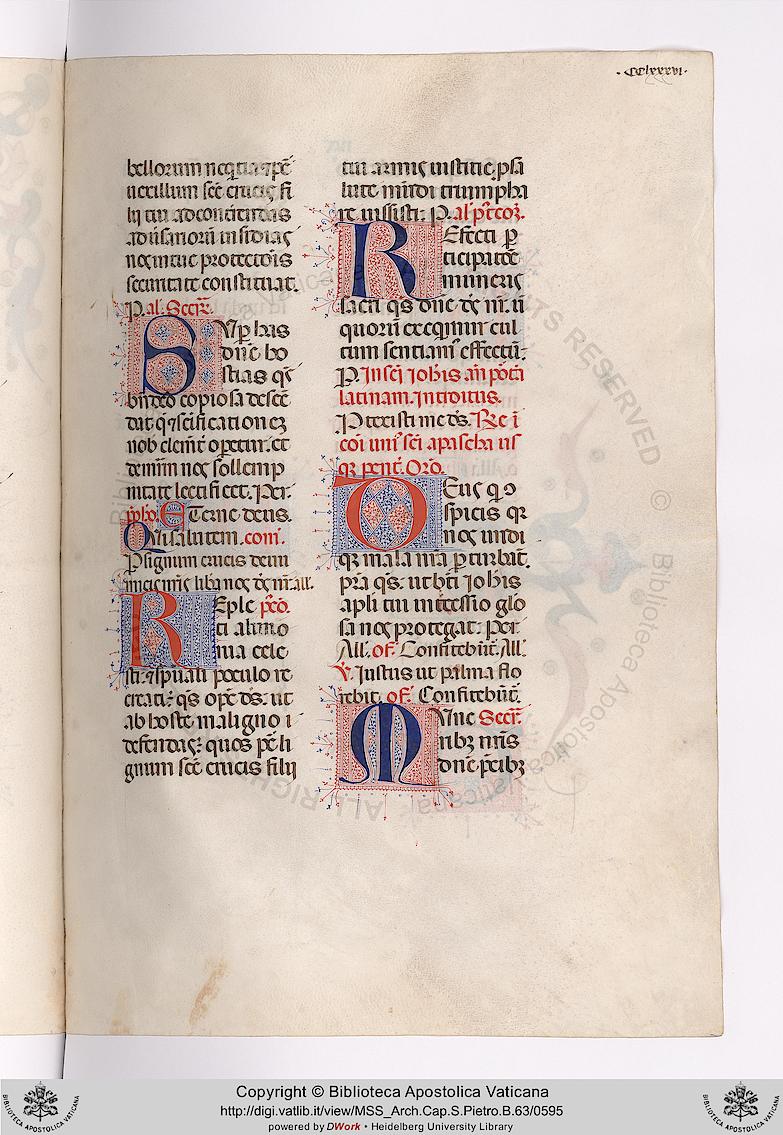 .CClxxxvi.
bellorum neqtia p pe
uexillum sce crucis fi
lij tui ad conterendas
aduersariorum insidias
nos in tue protectois
securitate constituat.
P. al. Secr.
Super has
dne ho
stias qs
bndco copiosa desce
dat q scificationez
nob clemet opetur. et
demum nos sollemp
nitate letificet. Per.
pho. Eterne deus.
Qui salutem. com.
P signum crucis de ini
micis nris liba nos ds nr. all.
Reple pco.
ti alimo
nia cele
sti: spuali poculo re
creati: qs ope ds: ut
ab hoste maligno
defendas: quos pe li
gnum sce crucis filij
tui armis iustitie. p sa
lute mundi triumpha
re iussisti. P. al. pteoz.
Refecti p
ticipatoe
muneris
sacri qs dne ds nr. ut
quorum exequimur cul
tum sentiam effectu.
P. In sci Iohis an porta
latinam. Introitus.
Protexisti me ds. Re i
coi uni sci a pascha us
qz pent. Oro.
Deus q
spicis qz
nos undi
qz mala nra pturbat.
pra qs. ut bti Iohis
apli tui intcessio glo
sa nos protegat. Per.
All. of. Confitebut. All.
V. Iustus ut palma flo
rebit. of. Confitebut.
Mune Secr.
ribz nris
dne pcibz
Copyright © Biblioteca Apostolica Vaticana
http://digi.vatlib.it/view/MSS_Arch.Cap.S.Pietro.B.63/0595
powered by DWork • Heidelberg University Library
BIBLIOTECA APOSTOLICA VATICANA
BIBLIOTECA APOSTOLICA VATICANA